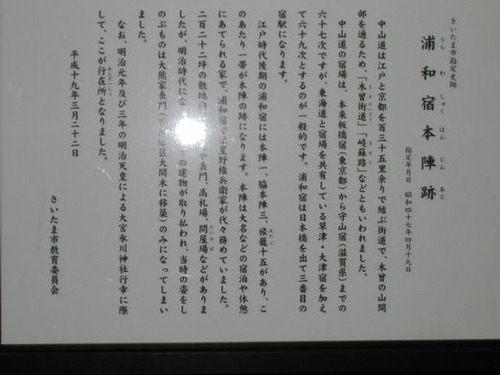 さいたま市指定史跡
浦和宿本陣跡
うらわしゅくほんじんあと
指定年月日 昭和四十七年四月十九日
中山道は江戸と京都を百三十五里余りで結ぶ街道で、木曽の山間
部を通るため、「木曽街道」「岐蘇路」などともいわれました。
中山道の宿場は、本来板橋宿(東京都)から守山宿(滋賀県)までの
六十七次ですが、東海道と宿場を共有している草津・大津宿を加え
て六十九次とするのが一般的です。浦和宿は日本橋を出て三番目の
宿駅になります。
江戸時代後期の浦和宿には本陣一、脇本陣三、旅籠十五があり、こ
のあたり一帯が本陣の跡になります。本陣は大名などの宿泊や休憩
にあてられる家で、浦和宿 星野権兵衛家が代々務めていました。
二百二十二坪の敷地 や表門、高札場、問屋場などがありま
したが、明治時代にな の建物が取り払われ、当時の姿をし
のぶものは大熊家表門( 区大間木に移築)のみになってしまい
ました。
なお、明治元年及び三年の明治天皇による大宮氷川神社行幸に際
して、ここが行在所となりました。
平成十九年三月二十二日
さいたま市教育委員会